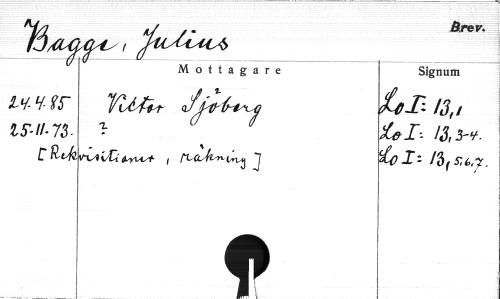 Brev.
Bagge, Julius
Mottagare Signum
24.4.85 Victor Sjöberg Lo I: 13,1
25-11-73. ? Lo I: 13,3-4.
[Rekvisitioner, räkning] Lo I: 13,5.6,7.